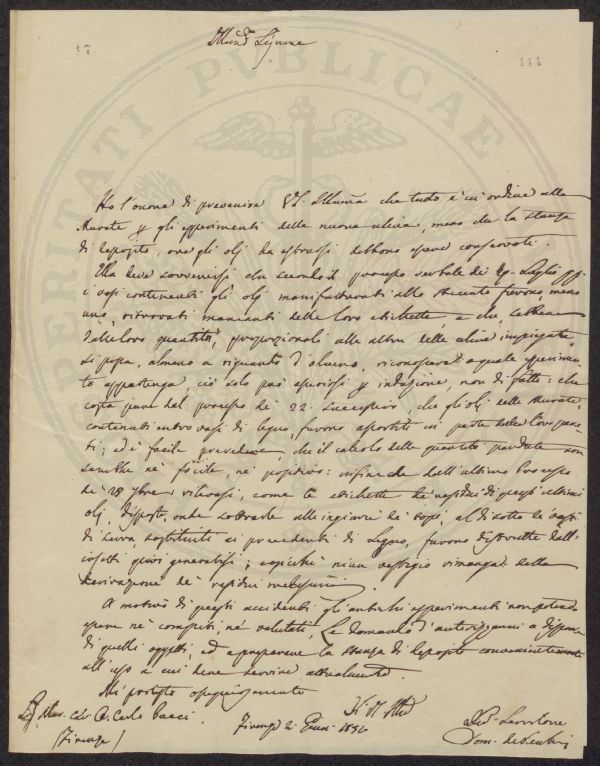 Signore
Ho l'onore di prevenire VS. Illma che tutto è in ordine alle
Murate p gli esperimenti delle nuove ulive, meno che la stanza
di deposito, ove gli olj da estrarsi debbono essere conservati.
Ella deve sovvenirsi che secondo il processo verbale de' 29 Luglio
i vasi contenenti gli olj manifatturati allo furono, meno
uno, ritrovati mancanti delle loro etichette, e che, sebbene
dalle loro quantità, proporzionali alle altre delle ulive impiegate
si possa, almeno a riguardo d'alcuno, riconoscere a quale esperimen-
to appartenga, ciò solo può aversi p induzione, non di fatto: che
costa pure dal processo de' 22 successivo, che gli olj delle Murate
contenuti entro vasi di legno, furono in parte
ed è facile prevedere, che il calcolo delle quantità perdute non
sarebbe nè facile, nè positivo: infine che dall'ultimo Processo
de' 28 come le etichette de' residui di questi ultimi
olj, disposti, onde sottrarle alle ingiurie de' topi, al di sotto de' vasi
di terra sostituiti ai precedenti di Legno, furono distrutte dall'
insetti quivi generatisi; cosicchè niun vestigio rimanga della
derivazione de' residui medesimi.
A motivo di questi accidenti gli antichi esperimenti non potendo
essere nè compiti, nè valutati, Le domando d'autorizzarmi a disporre
di quelli oggetti, ed a preparare la stanza di deposito convenientemente
all'uso a cui deve servire attualmente.
Mi protesto ossequiosamente
Di VS
Sig. Carlo
(Firenze)
Firenze 2
Servitore
Dom.